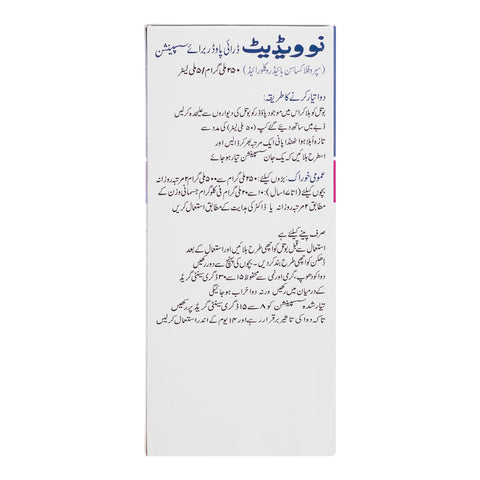 نوویڈیٹ ڈرائی پاؤڈر برائے سسپینشن
(سپروفلاکساسن ہائیڈروکلورائیڈ) ۲۵۰ ملی گرام/۵ ملی لیٹر
دوا تیار کرنے کا طریقہ:
بوتل کو ہلا کر اس میں موجود پاؤڈر کو بوتل کی دیواروں سے علیحدہ کر لیں
ڈبے میں ساتھ دیئے گئے کپ (۵۰ ملی لیٹر) کی مدد سے
تازہ اُبلا ہوا ٹھنڈا پانی ایک مرتبہ بھر کر ڈالیں اور
اسطرح ہلائیں کہ یک جان سسپینشن تیار ہو جائے
عمومی خوراک: بڑوں کیلئے: ۲۵۰ ملی گرام سے ۵۰۰ ملی گرام ۲ مرتبہ روزانہ
بچوں کیلئے (۱ تا ۱۷ سال): ۱۰ سے ۲۰ ملی گرام فی کلوگرام جسمانی وزن کے
مطابق ۲ مرتبہ روزانہ یا ڈاکٹر کی ہدایت کے مطابق استعمال کریں
صرف پینے کیلئے ہے
استعمال سے قبل بوتل کو اچھی طرح ہلائیں اور استعمال کے بعد
ڈھکن کو اچھی طرح بند کر دیں۔ بچوں کی پہنچ سے دور رکھیں
دوا کو دھوپ، گرمی اور نمی سے محفوظ ۱۵ سے ۳۰ ڈگری سینٹی گریڈ
کے درمیان میں رکھیں ورنہ دوا خراب ہو جائیگی
تیار شدہ سسپینشن کو ۸ سے ۱۵ ڈگری سینٹی گریڈ پر رکھیں
تاکہ دوا کی تاثیر برقرار رہے اور ۱۴ یوم کے اندر استعمال کر لیں